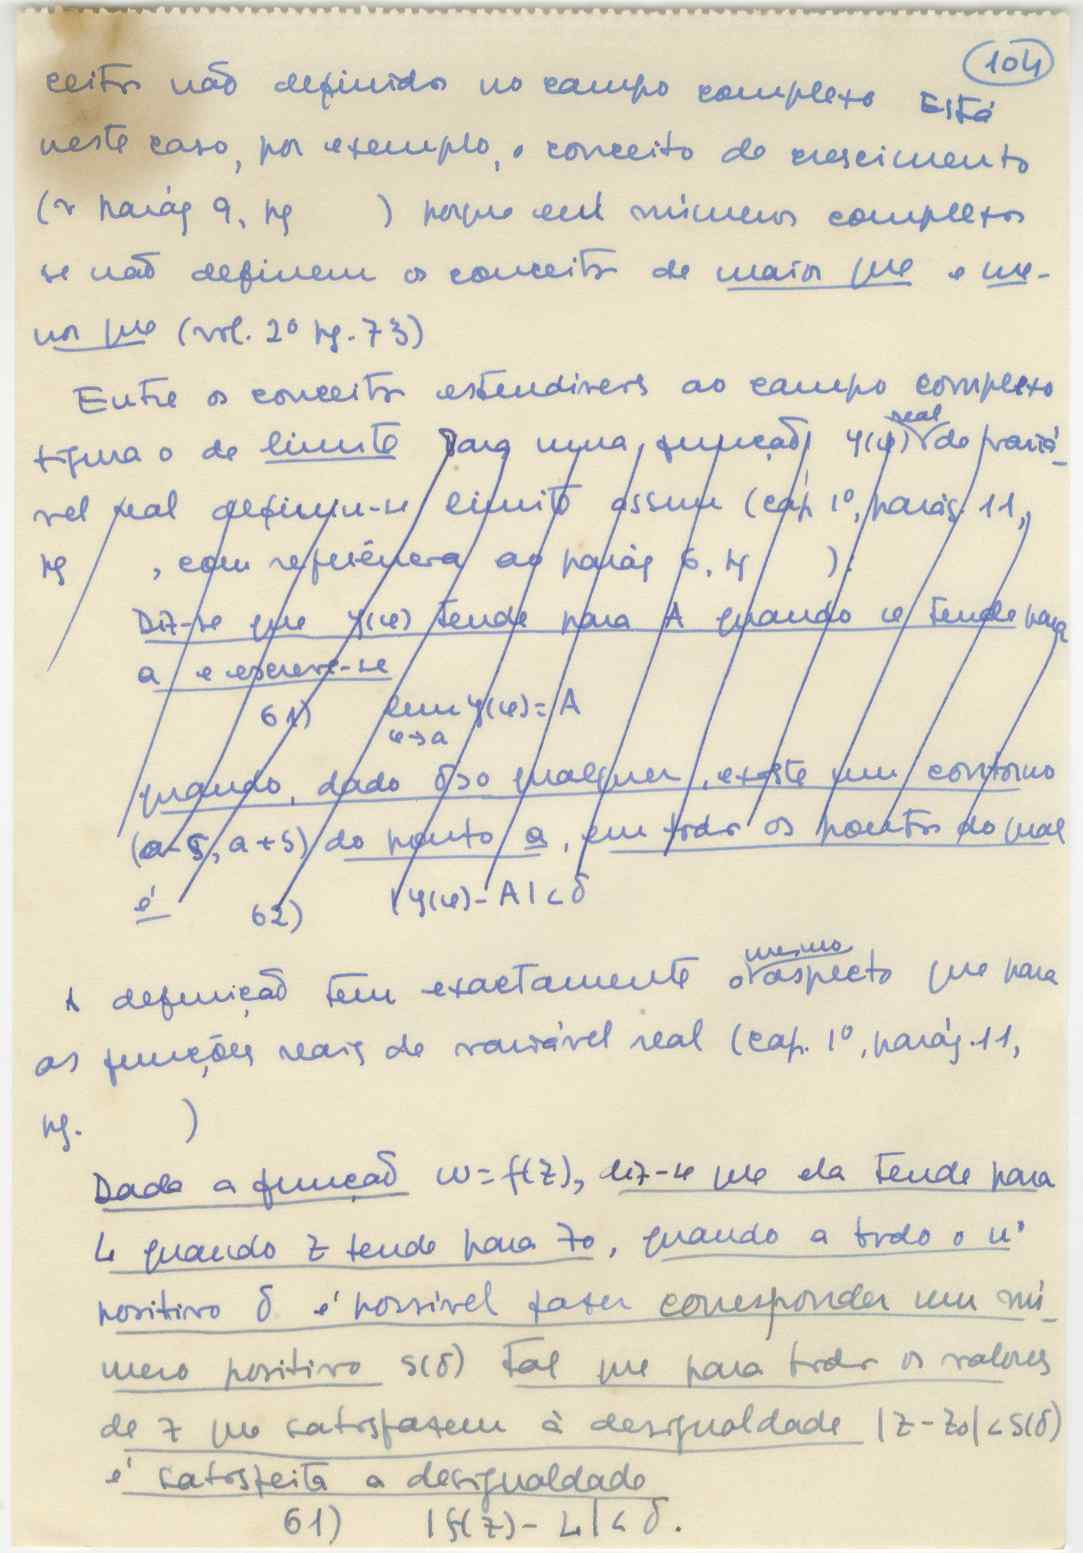 104
ceitos não definidos no campo complexo Está
neste caso, por exemplo, o conceito de crescimento
(v parág 9, pg ) porque em números complexos
se não definem os conceitos de maior que e me-
nor que (vol. 2º pg. 73)
Entre os conceitos extendiveis ao campo complexo
figura o de limite Para uma função y(x) real de variá-
vel real definiu-se limite assim (cap. 1º, parág. 11,
pg , com referência ao parág 6, pg ):
Diz-se que y(x) tende para A quando x tende para
a e escreve-se
61) lim y(x) = A
x→a
quando, dado δ>0 qualquer, existe um contorno
(a-s, a+s) do ponto a, em todos os pontos do qual
é 62) |y(x) - A| < δ
A definição tem exactamente o mesmo aspecto que para
as funções reais de variável real (cap. 1º, parág. 11,
pg. )
Dada a função w = f(z), diz-se que ela tende para
L quando z tende para z0, quando a todo o nº
positivo δ é possível fazer corresponder um nú-
mero positivo s(δ) tal que para todos os valores
de z que satisfazem à desigualdade |z-z0| < s(δ)
é satisfeita a desigualdade
61) |f(z) - L| < δ.